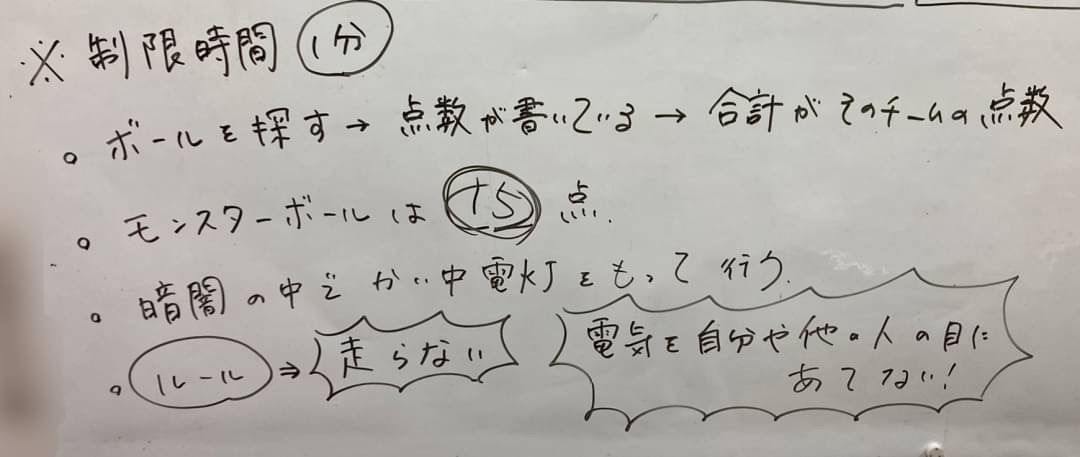 ※ 制限時間 1分
。ボールを探す→点数が書いている→合計がそのチームの点数
。モンスターボールは+5点.
。暗闇の中でかい中電灯をもって行う.
。ルール⇒走らない 電気を自分や他の人の目に
あてない!